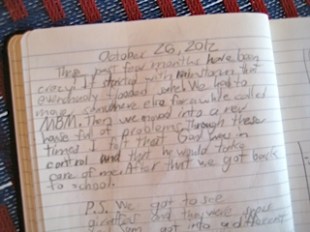 October 26, 2012
These past few months have been
crazy. It started with rainstorm that
flooded some. We had to
move somewhere else for awhile called
MBM. Then we moved into a rev
have full of problems. Through these
times I felt that God was in
control and that he would take
care of me. After that we got back
to school.
P.S. We got to see
giraffes and they were
got into a different